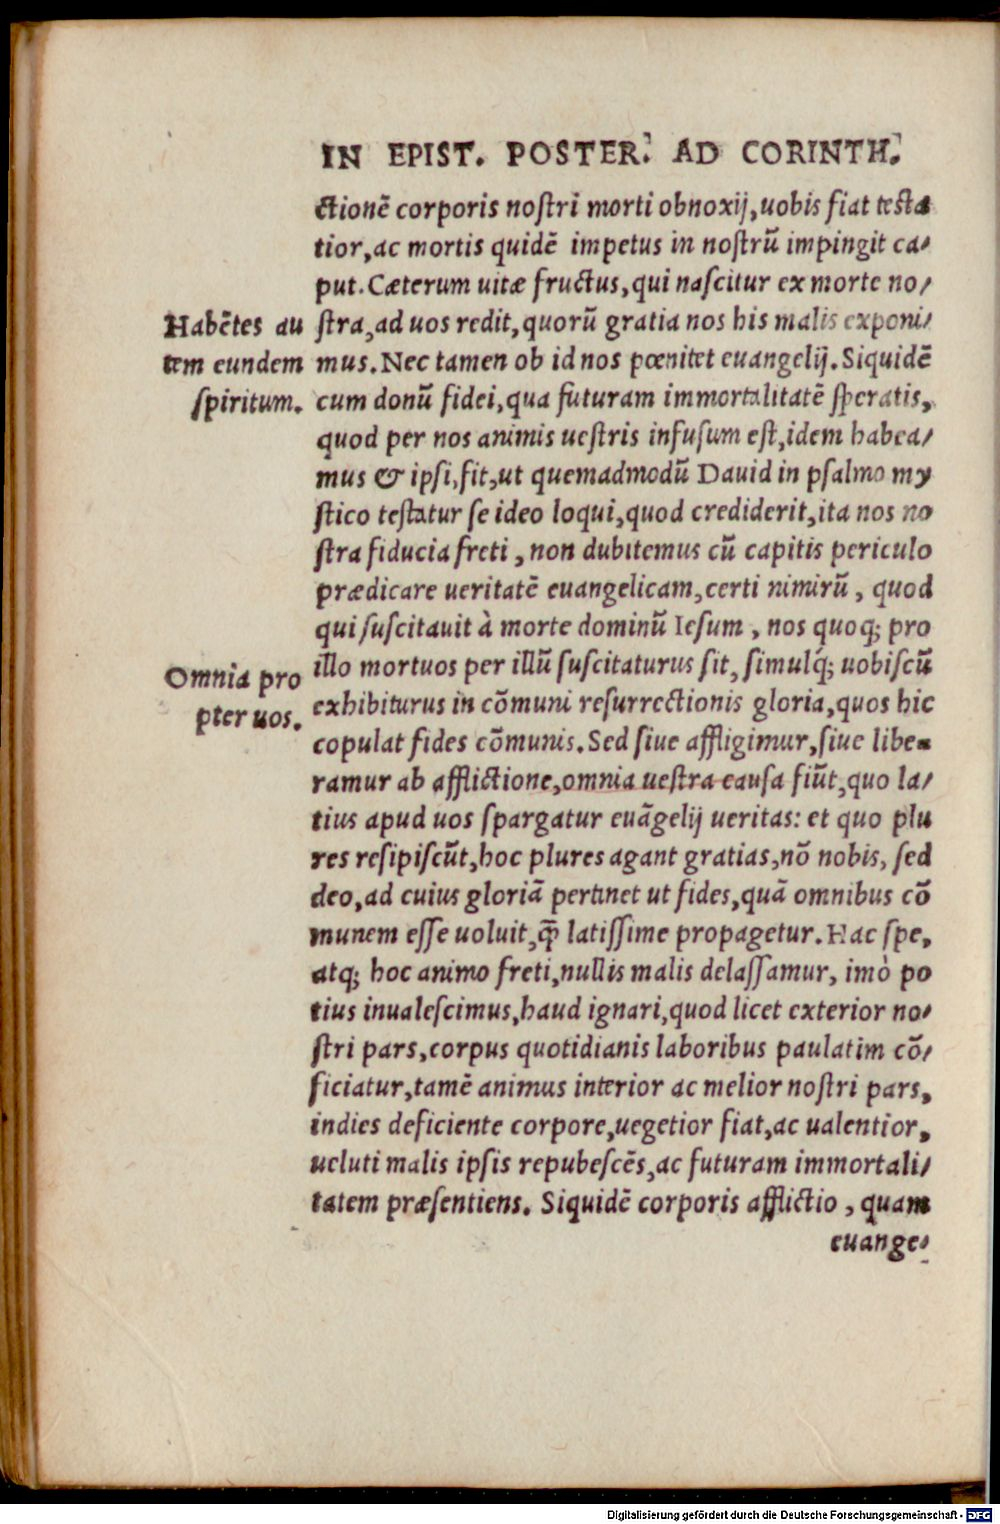 IN EPIST. POSTER. AD CORINTH.
ctionē corporis noſtri morti obnoxij, uobis fiat testa
tior, ac mortis quidē impetus in noſtrū impingit ca⸗
put. Cæterum uitæ fructus, qui naſcitur ex morte no⸗
ſtra, ad uos redit, quorū gratia nos his malis exponi⸗
mus. Nec tamen ob id nos pœnitet euangelij. Siquidē
cum donū fidei, qua futuram immortalitatē ſperatis,
quod per nos animis ueſtris infuſum eſt, idem habea⸗
mus & ipſi, fit, ut quemadmodū Dauid in pſalmo my
ſtico teſtatur ſe ideo loqui, quod crediderit, ita nos no
ſtra fiducia freti, non dubitemus cū capitis periculo
prædicare ueritatē euangelicam, certi nimirū, quod
qui ſuſcitauit à morte dominū Ieſum, nos quoq; pro
illo mortuos per illū ſuſcitaturus ſit, ſimulq́; uobiſcū
exhibiturus in cōmuni reſurrectionis gloria, quos hic
copulat fides cōmunis. Sed ſiue affligimur, ſiue libe⸗
ramur ab afflictione, omnia ueſtra cauſa fiūt, quo la⸗
tius apud uos ſpargatur euāgelij ueritas: et quo plu
res reſipiſcūt, hoc plures agant gratias, nō nobis, ſed
deo, ad cuius gloriā pertinet ut fides, quā omnibus cō
munem eſſe uoluit, q̄ latiſſime propagetur. Hac ſpe,
atq; hoc animo freti, nullis malis delaſſamur, imò po
tius inualeſcimus, haud ignari, quod licet exterior no⸗
ſtri pars, corpus quotidianis laboribus paulatim cō⸗
ficiatur, tamē animus interior ac melior noſtri pars,
indies deficiente corpore, uegetior fiat, ac ualentior,
ueluti malis ipſis repubeſcēs, ac futuram immortali⸗
tatem præſentiens. Siquidē corporis afflictio, quam
euange⸗
Habētes au
tem eundem
ſpiritum.
Omnia pro
pter uos.
Digitalisierung gefördert durch die Deutsche Forschungsgemeinschaft - DFG